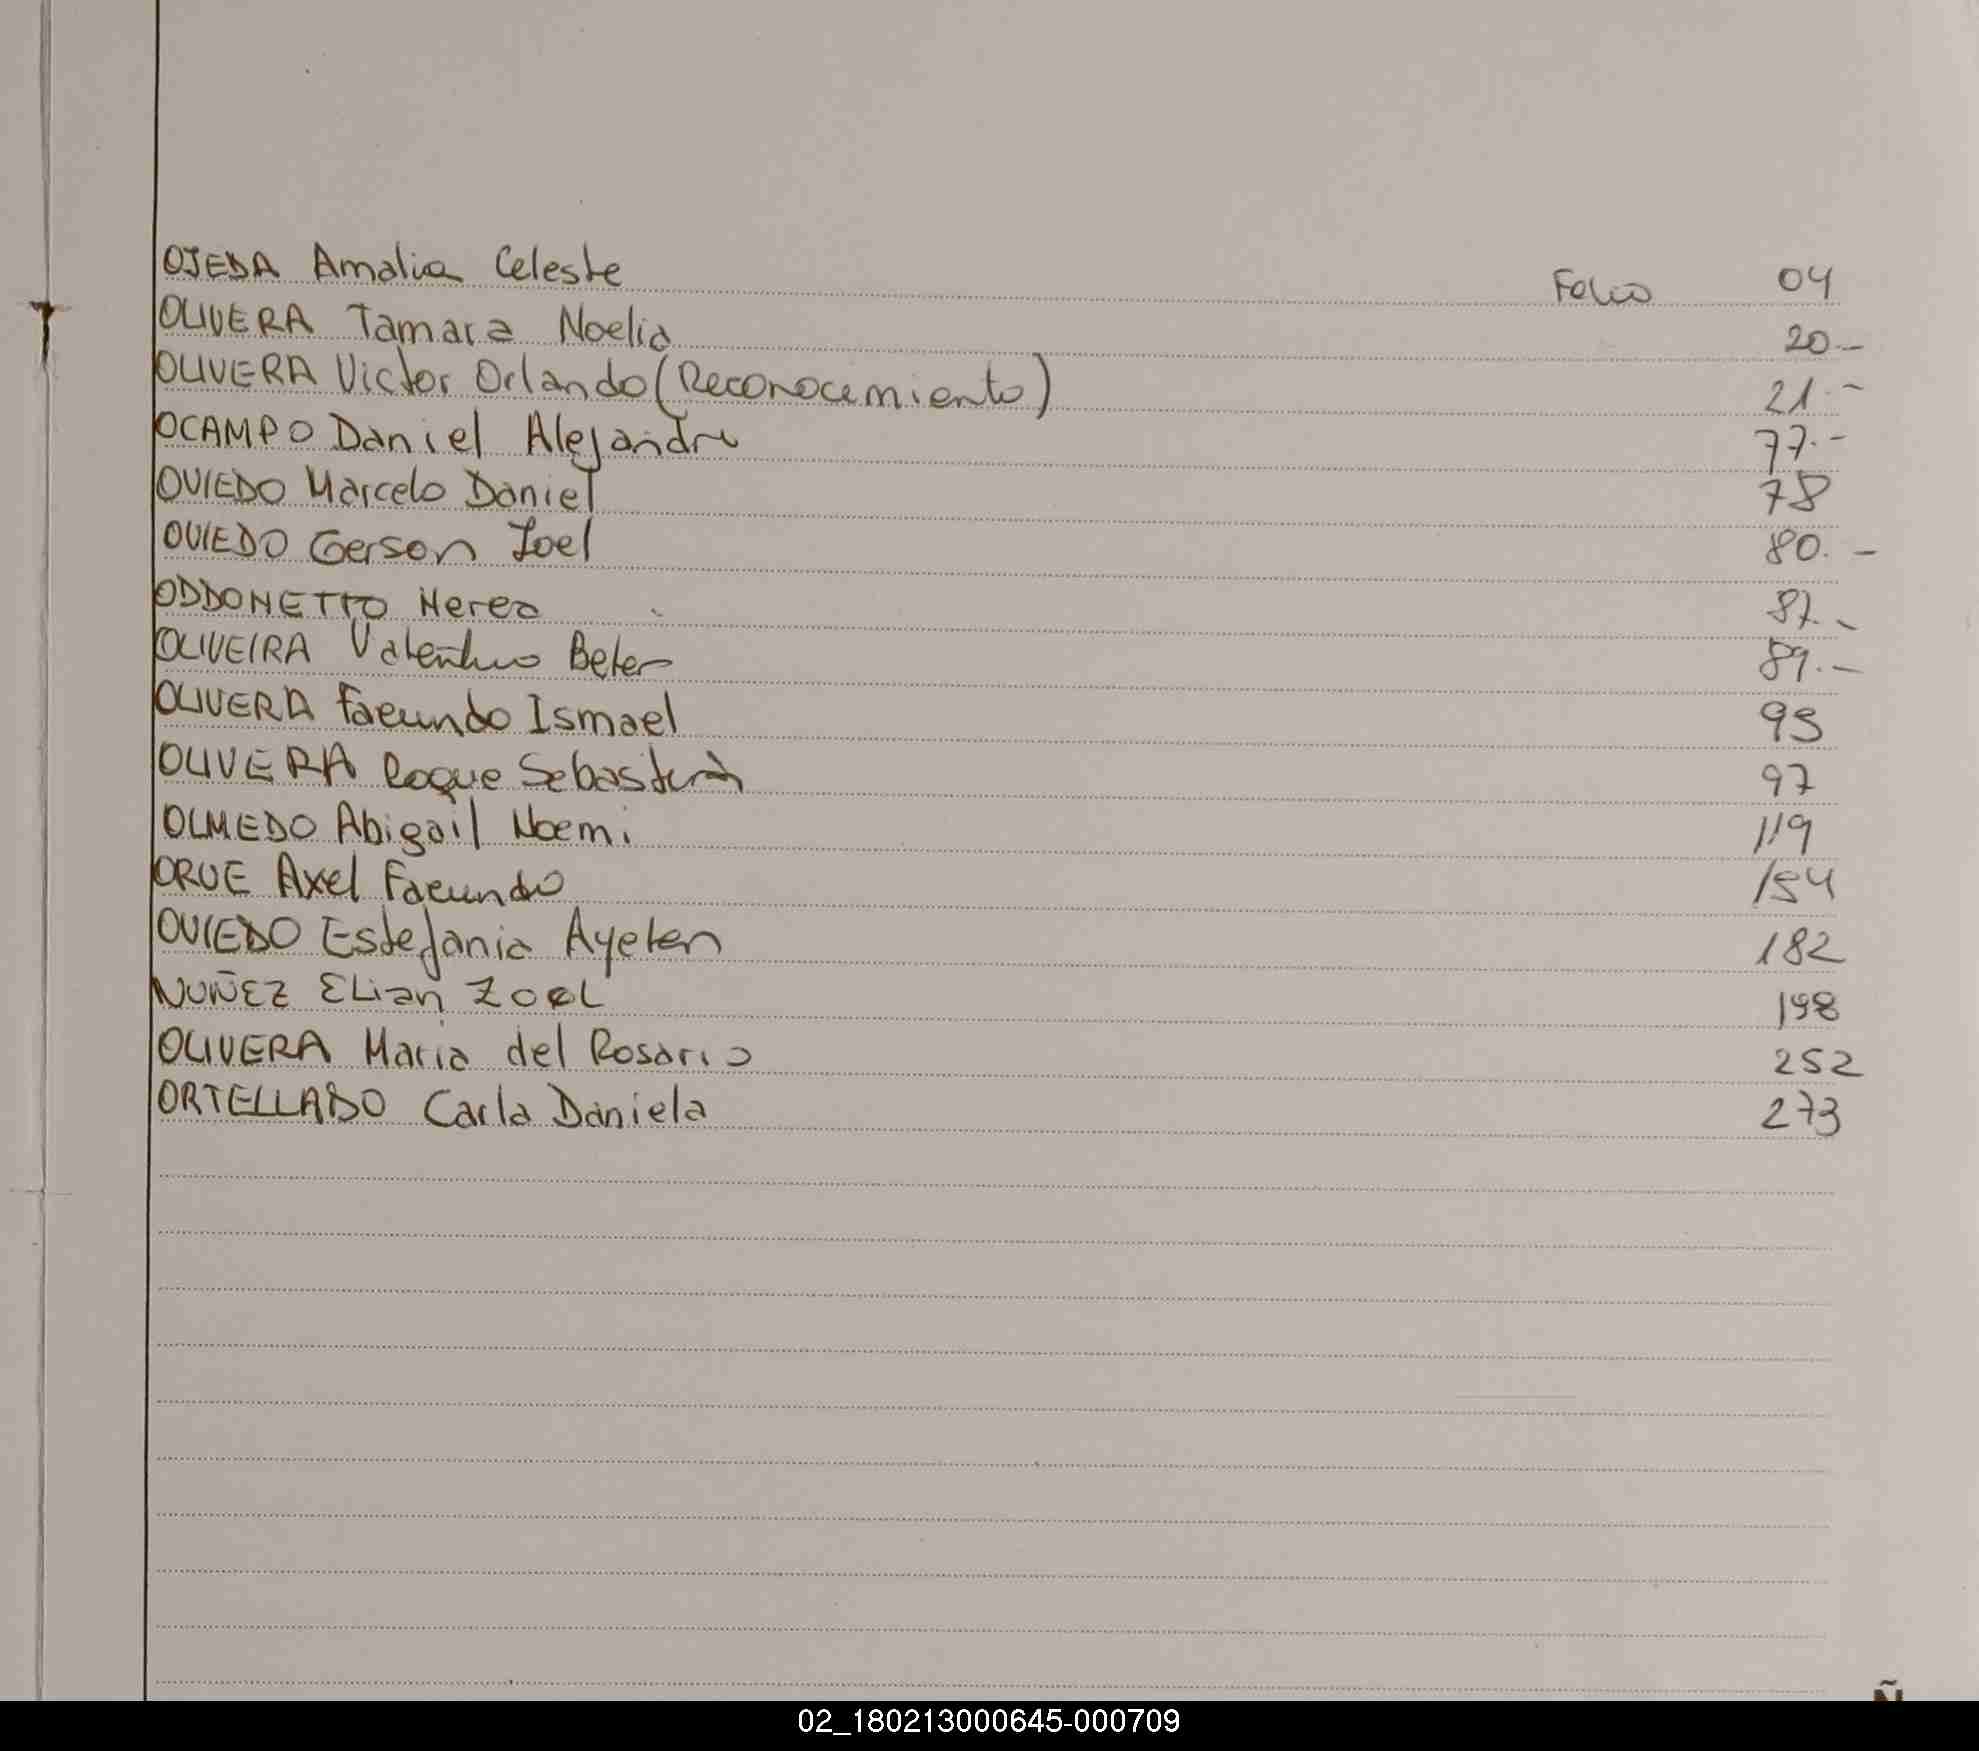 OJEDA Amalia Celeste Folio 04
OLIVERA Tamara Noelia 20.-
OLIVERA Victor Orlando (Reconocimiento) 21.-
OCAMPO Daniel Alejandro 77.-
OVIEDO Marcelo Daniel 78
OVIEDO Gerson Joel 80.-
ODDONETTO Nerea 87.-
OLIVEIRA Valentino Beter 89.-
OLIVERA Facundo Ismael 95
OLIVERA Roque Sebastián 97
OLMEDO Abigail Noemi 119
ORUE Axel Facundo 154
OVIEDO Estefania Ayelen 182
NUÑEZ Elian Zoel 198
OLIVERA Maria del Rosario 252
ORTELLADO Carla Daniela 273
Ñ
02_180213000645-000709